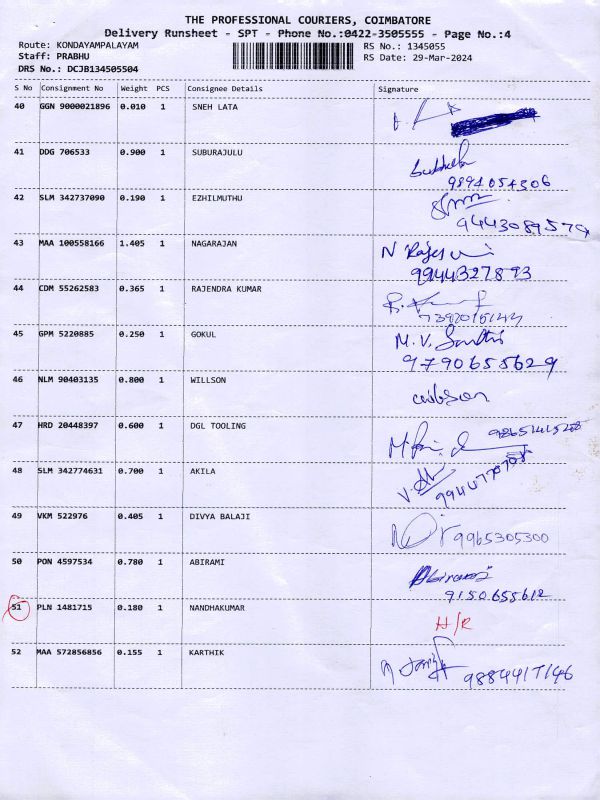 THE PROFESSIONAL COURIERS, COIMBATORE
Delivery Runsheet - SPT - Phone No.:0422-3505555 - Page No.:4
Route: KONDAYAMPALAYAM
RS No.: 1345055
Staff: PRABHU
RS Date: 29-Mar-2024
DRS No.: DCJB134505504
S No Consignment No Weight PCS Consignee Details Signature
40 GGN 9000021896 0.010 1 SNEH LATA
41 DDG 706533 0.900 1 SUBURAJULU
9894054306
42 SLM 342737090 0.190 1 EZHILMUTHU
9443089579
43 MAA 100558166 1.405 1 NAGARAJAN
9944327893
44 CDM 55262583 0.365 1 RAJENDRA KUMAR
45 GPM 5220885 0.250 1 GOKUL M.V.
9790655629
46 NLM 90403135 0.800 1 WILLSON
47 HRD 20448397 0.600 1 DGL TOOLING
48 SLM 342774631 0.700 1 AKILA
49 VKM 522976 0.405 1 DIVYA BALAJI 9965305300
50 PON 4597534 0.780 1 ABIRAMI Abirami
9150655612
51 PLN 1481715 0.180 1 NANDHAKUMAR H/R
52 MAA 572856856 0.155 1 KARTHIK
9884417146